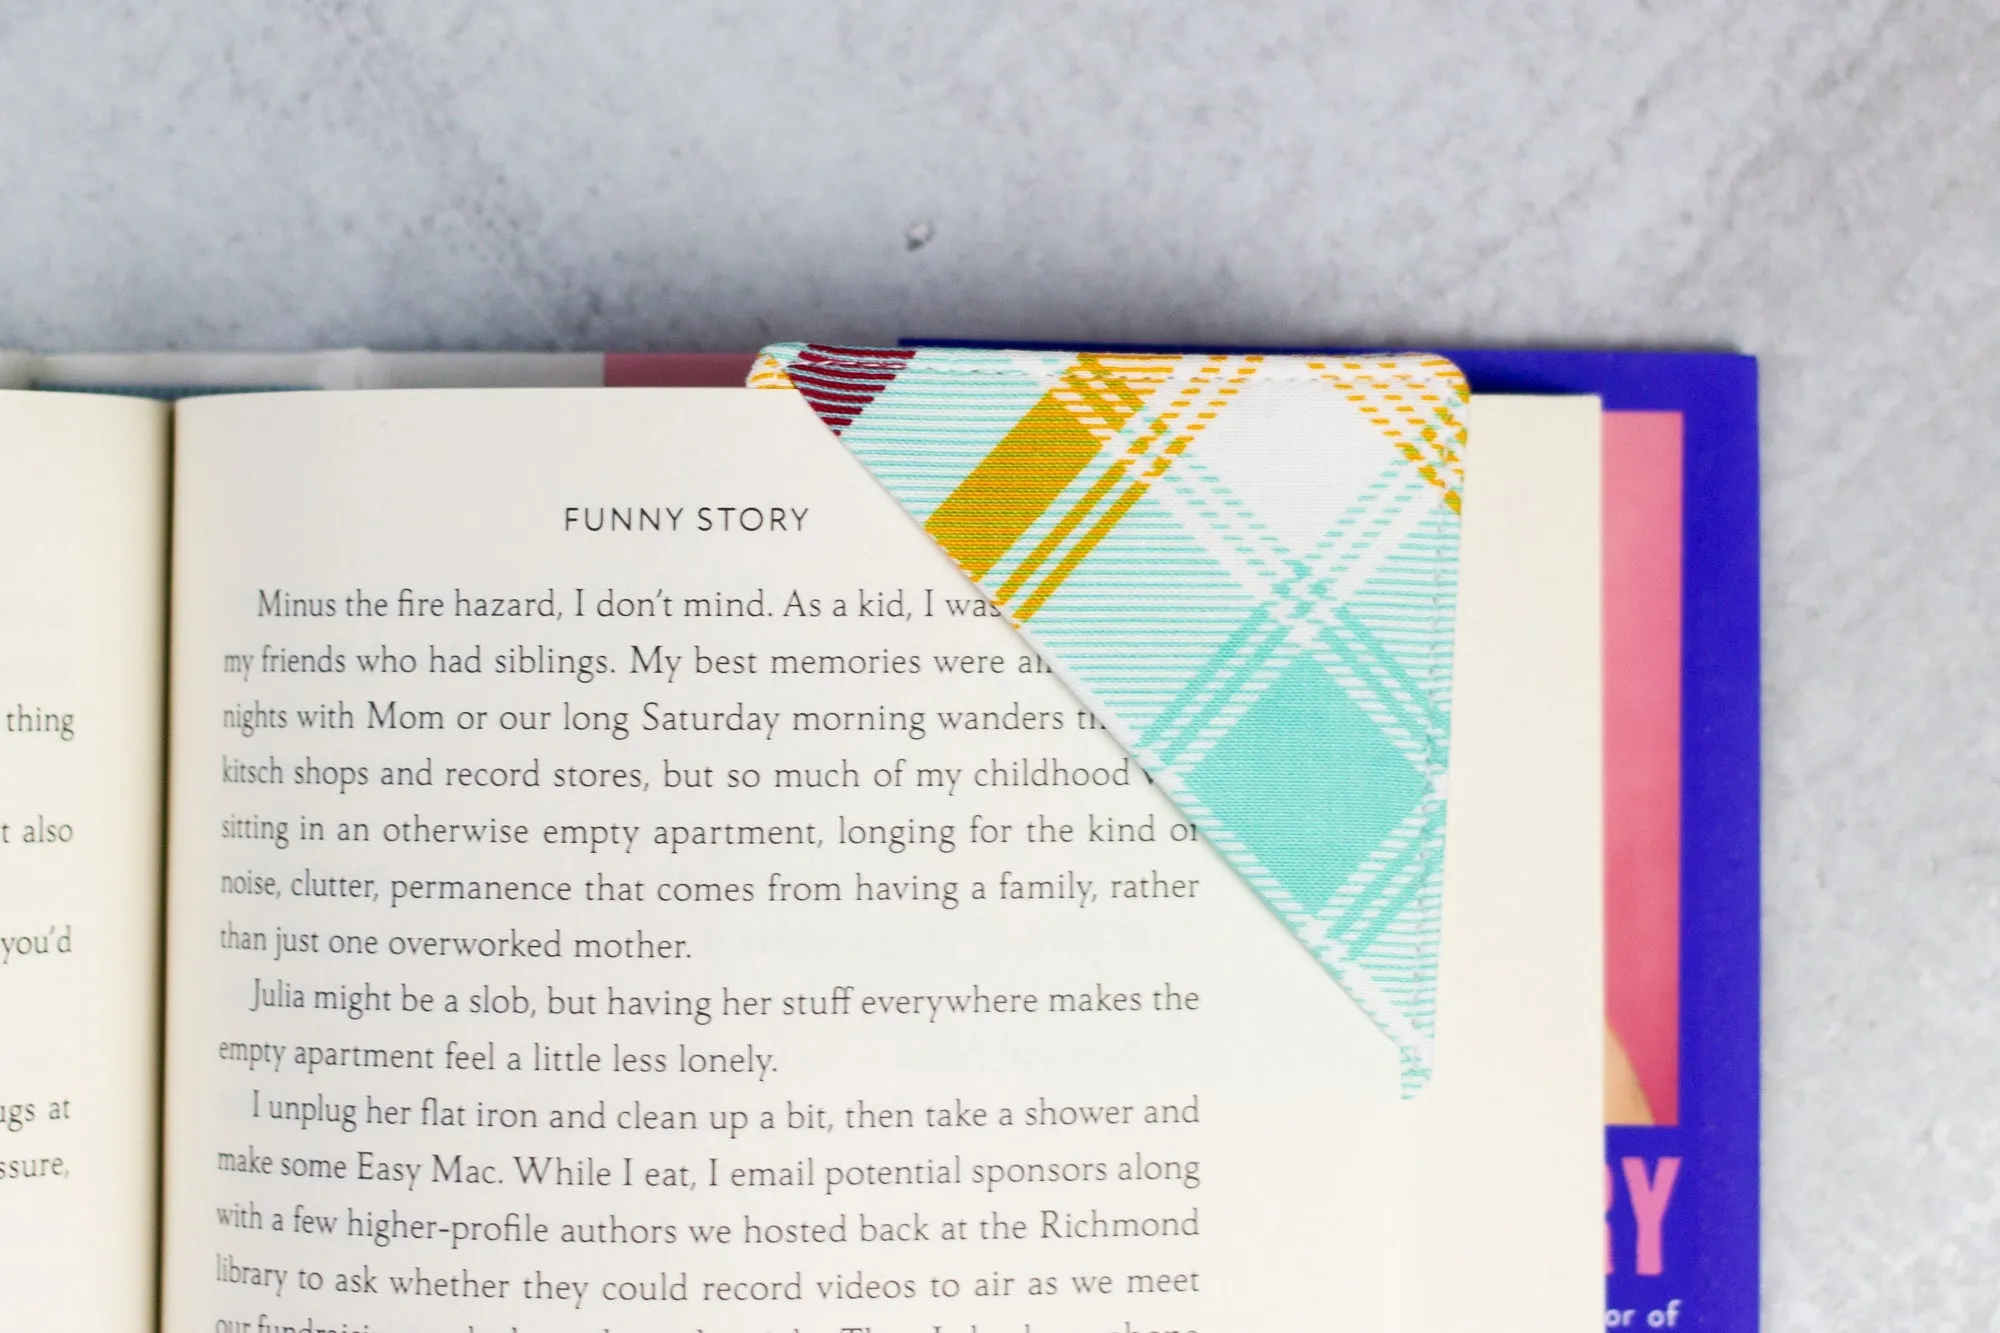 thing
also
you'd
at
FUNNY STORY
Minus the fire hazard, I don't mind. As a kid, I was
my friends who had siblings. My best memories were
nights with Mom or our long Saturday morning wanders
kitsch shops and record stores, but so much of my childhood
sitting in an otherwise empty apartment, longing for the kind of
noise, clutter, permanence that comes from having a family, rather
than just one overworked mother.
Julia might be a slob, but having her stuff everywhere makes the
empty apartment feel a little less lonely.
I unplug her flat iron and clean up a bit, then take a shower and
make some Easy Mac. While I eat, I email potential sponsors along
with a few higher-profile authors we hosted back at the Richmond
library to ask whether they could record videos to air as we meet
our
RY
or of